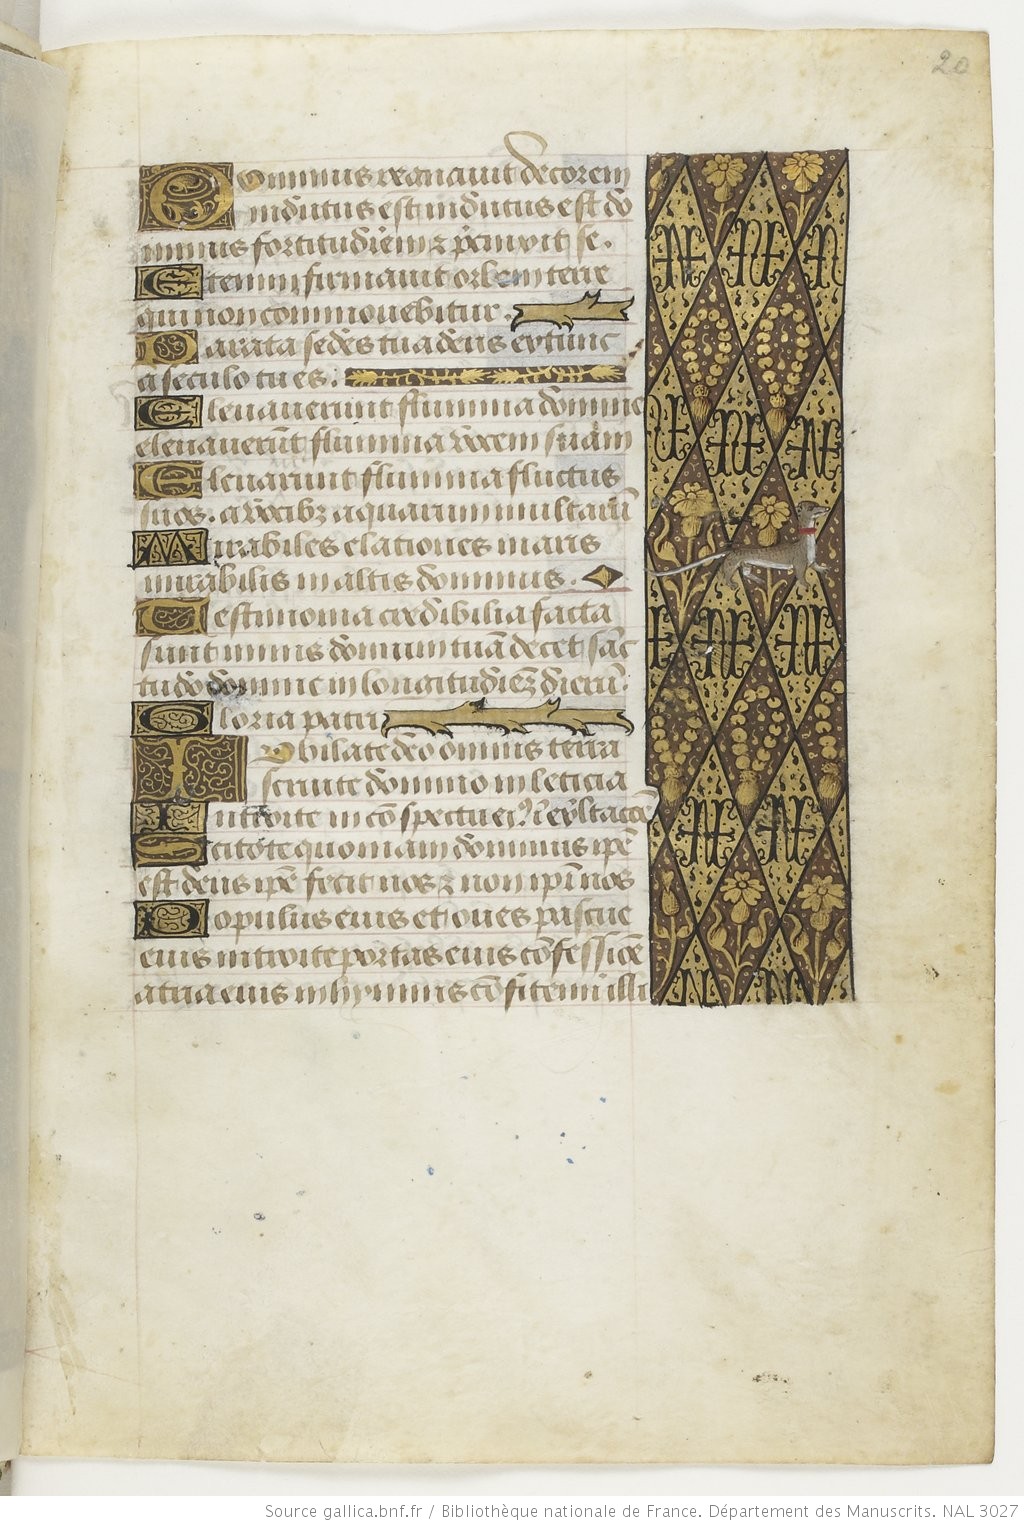 20
Dominus regnavit decorem
indutus est indutus est do
minus fortitudinem ⁊ precinxit se.
Etenim firmavit orbem terre
qui non commovebitur.
Parata sedes tua deus ex tunc
a seculo tu es.
Elevaverunt flumina domine
elevaverūt flumina vocem suam
Elevarunt flumina fluctus
suos. a vocibȝ aquarum multarū
Mirabiles elationes maris
mirabilis in altis dominus.
Testimonia credibilia facta
sunt nimis domum tuā decet sanc
tudo domine in longitudinē dierū.
Gloria patri
Iubilate deo omnis terra
servite domino in leticia
Introite in cōspectu ei⁹ ī exultacōe
Scitote quoniam dominus ipē
est deus ipē fecit nos ⁊ non ipī nos
Populus eius et oves pascue
eius introite portas eius cōfessiōe
atria eius in hymnis cōfitemini illi
Source gallica.bnf.fr / Bibliothèque nationale de France. Département des Manuscrits. NAL 3027